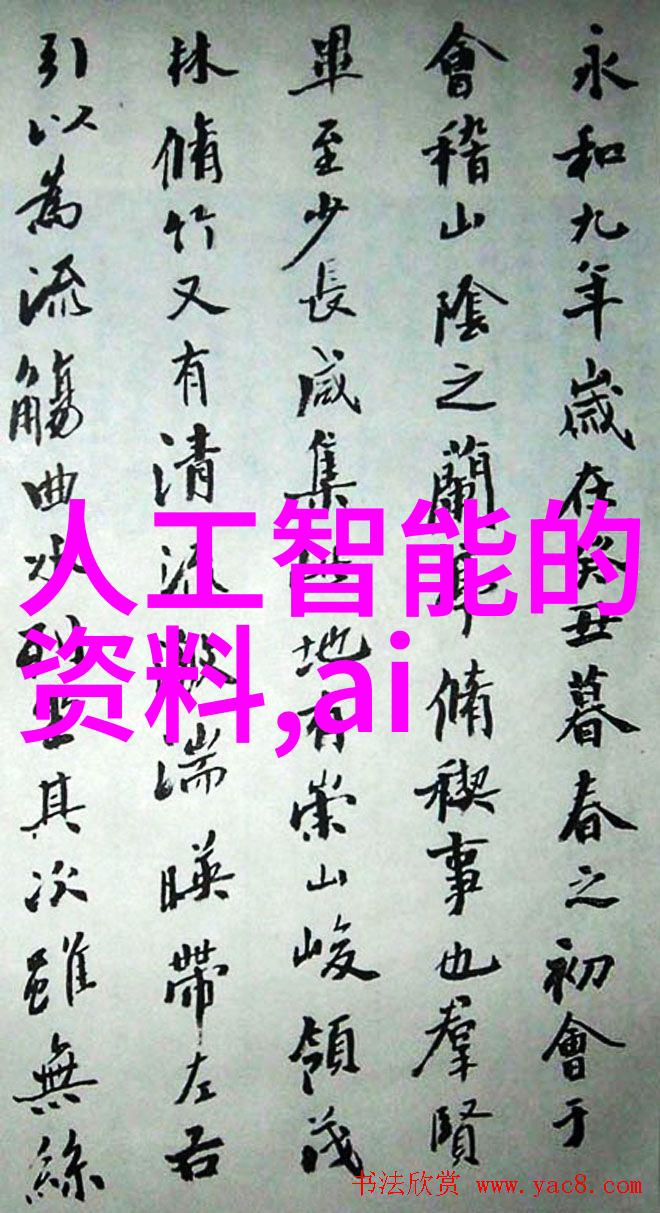 永和九年歲在癸丑暮春之初會于
會稽山陰之蘭亭脩禊事也羣賢
畢至少長咸集此地有崇山峻領茂
林脩竹又有清流激湍暎帶左右
引以為流觴曲水列坐其次雖無絲
人工智能的
资料,ai
书法欣赏 www.yac8.com